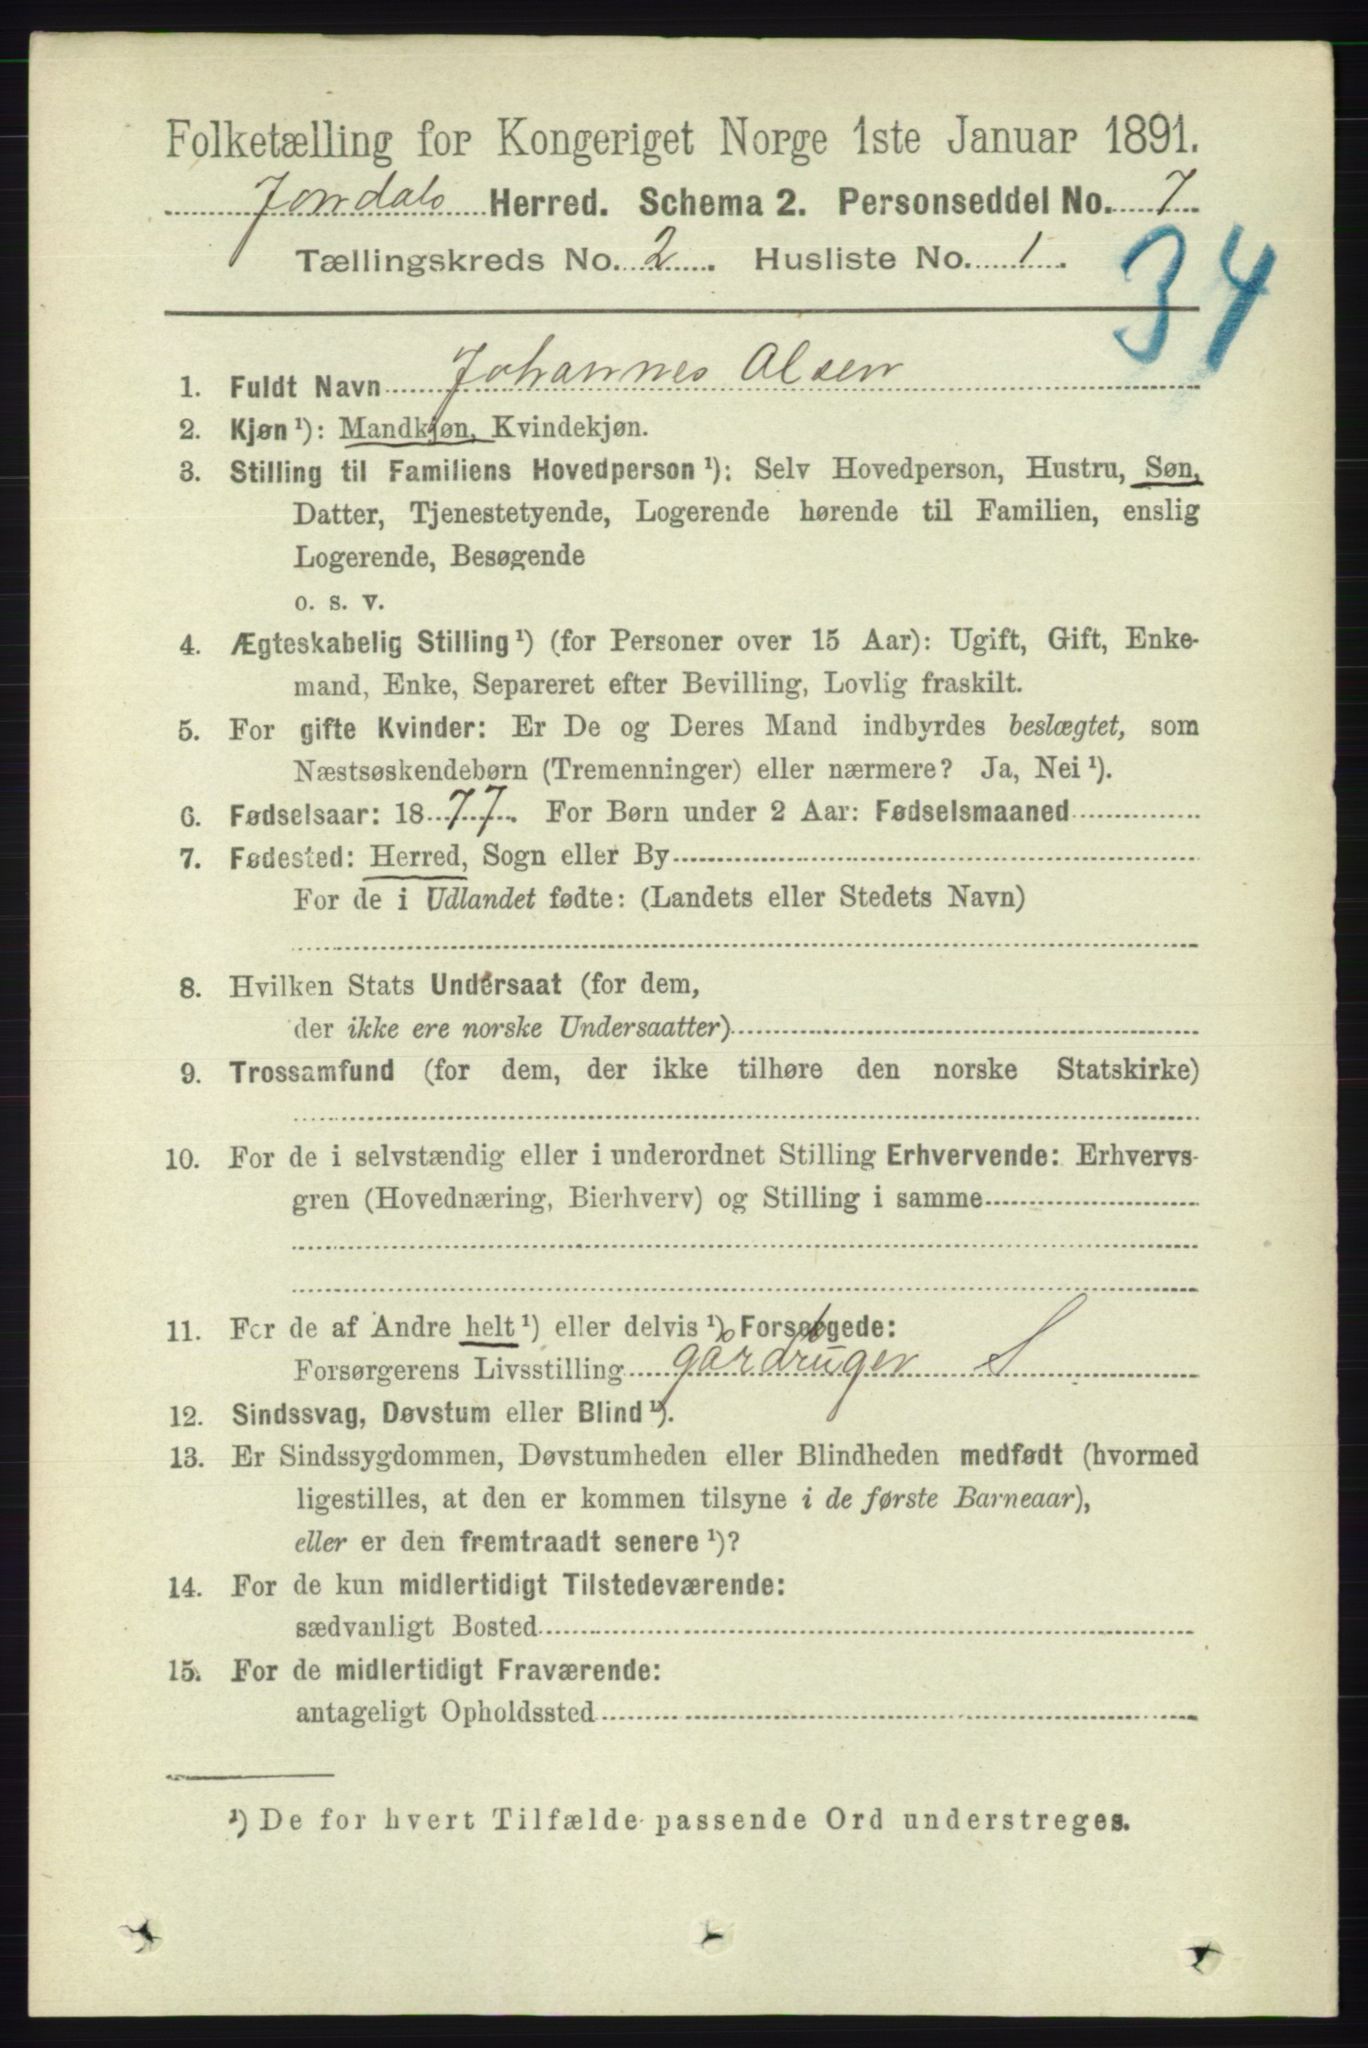 Folketælling for Kongeriget Norge 1ste Januar 1891.
Jondals Herred. Schema 2. Personseddel No. 7
Tællingskreds No. 2. Husliste No. 1.
34
1. Fuldt Navn Johannes Olsen
2. Kjøn ¹): Mandkjøn, Kvindekjøn.
3. Stilling til Familiens Hovedperson ¹): Selv Hovedperson, Hustru, Søn,
Datter, Tjenestetyende, Logerende hørende til Familien, enslig
Logerende, Besøgende
o. s. v.
4. Ægteskabelig Stilling ¹) (for Personer over 15 Aar): Ugift, Gift, Enke-
mand, Enke, Separeret efter Bevilling, Lovlig fraskilt.
5. For gifte Kvinder: Er De og Deres Mand indbyrdes beslægtet, som
Næstsøskendebørn (Tremenninger) eller nærmere? Ja, Nei ¹).
6. Fødselsaar: 1877. For Børn under 2 Aar: Fødselsmaaned
7. Fødested: Herred, Sogn eller By
For de i Udlandet fødte: (Landets eller Stedets Navn)
8. Hvilken Stats Undersaat (for dem,
der ikke ere norske Undersaatter)
9. Trossamfund (for dem, der ikke tilhøre den norske Statskirke)
10. For de i selvstændig eller i underordnet Stilling Erhvervende: Erhvervs-
gren (Hovednæring, Bierhverv) og Stilling i samme
11. For de af Andre helt ¹) eller delvis ¹) Forsørgede:
Forsørgerens Livsstilling gårdbruger S
12. Sindssvag, Døvstum eller Blind ¹).
13. Er Sindssygdommen, Døvstumheden eller Blindheden medfødt (hvormed
ligestilles, at den er kommen tilsyne i de første Barneaar),
eller er den fremtraadt senere ¹)?
14. For de kun midlertidigt Tilstedeværende:
sædvanligt Bosted
15. For de midlertidigt Fraværende:
antageligt Opholdssted
¹) De for hvert Tilfælde passende Ord understreges.